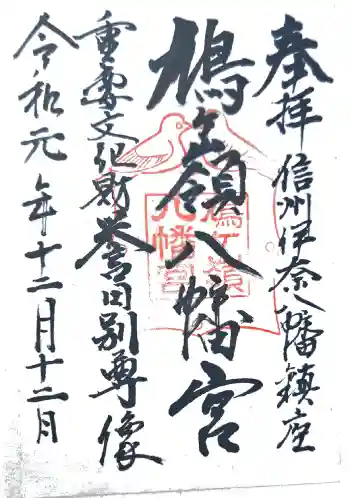 奉拝
信州伊奈八幡鎮座
鳩ヶ嶺八幡宮
鳩ヶ嶺
八幡宮
重要文化財誉田別尊像
令和元年十二月十二月